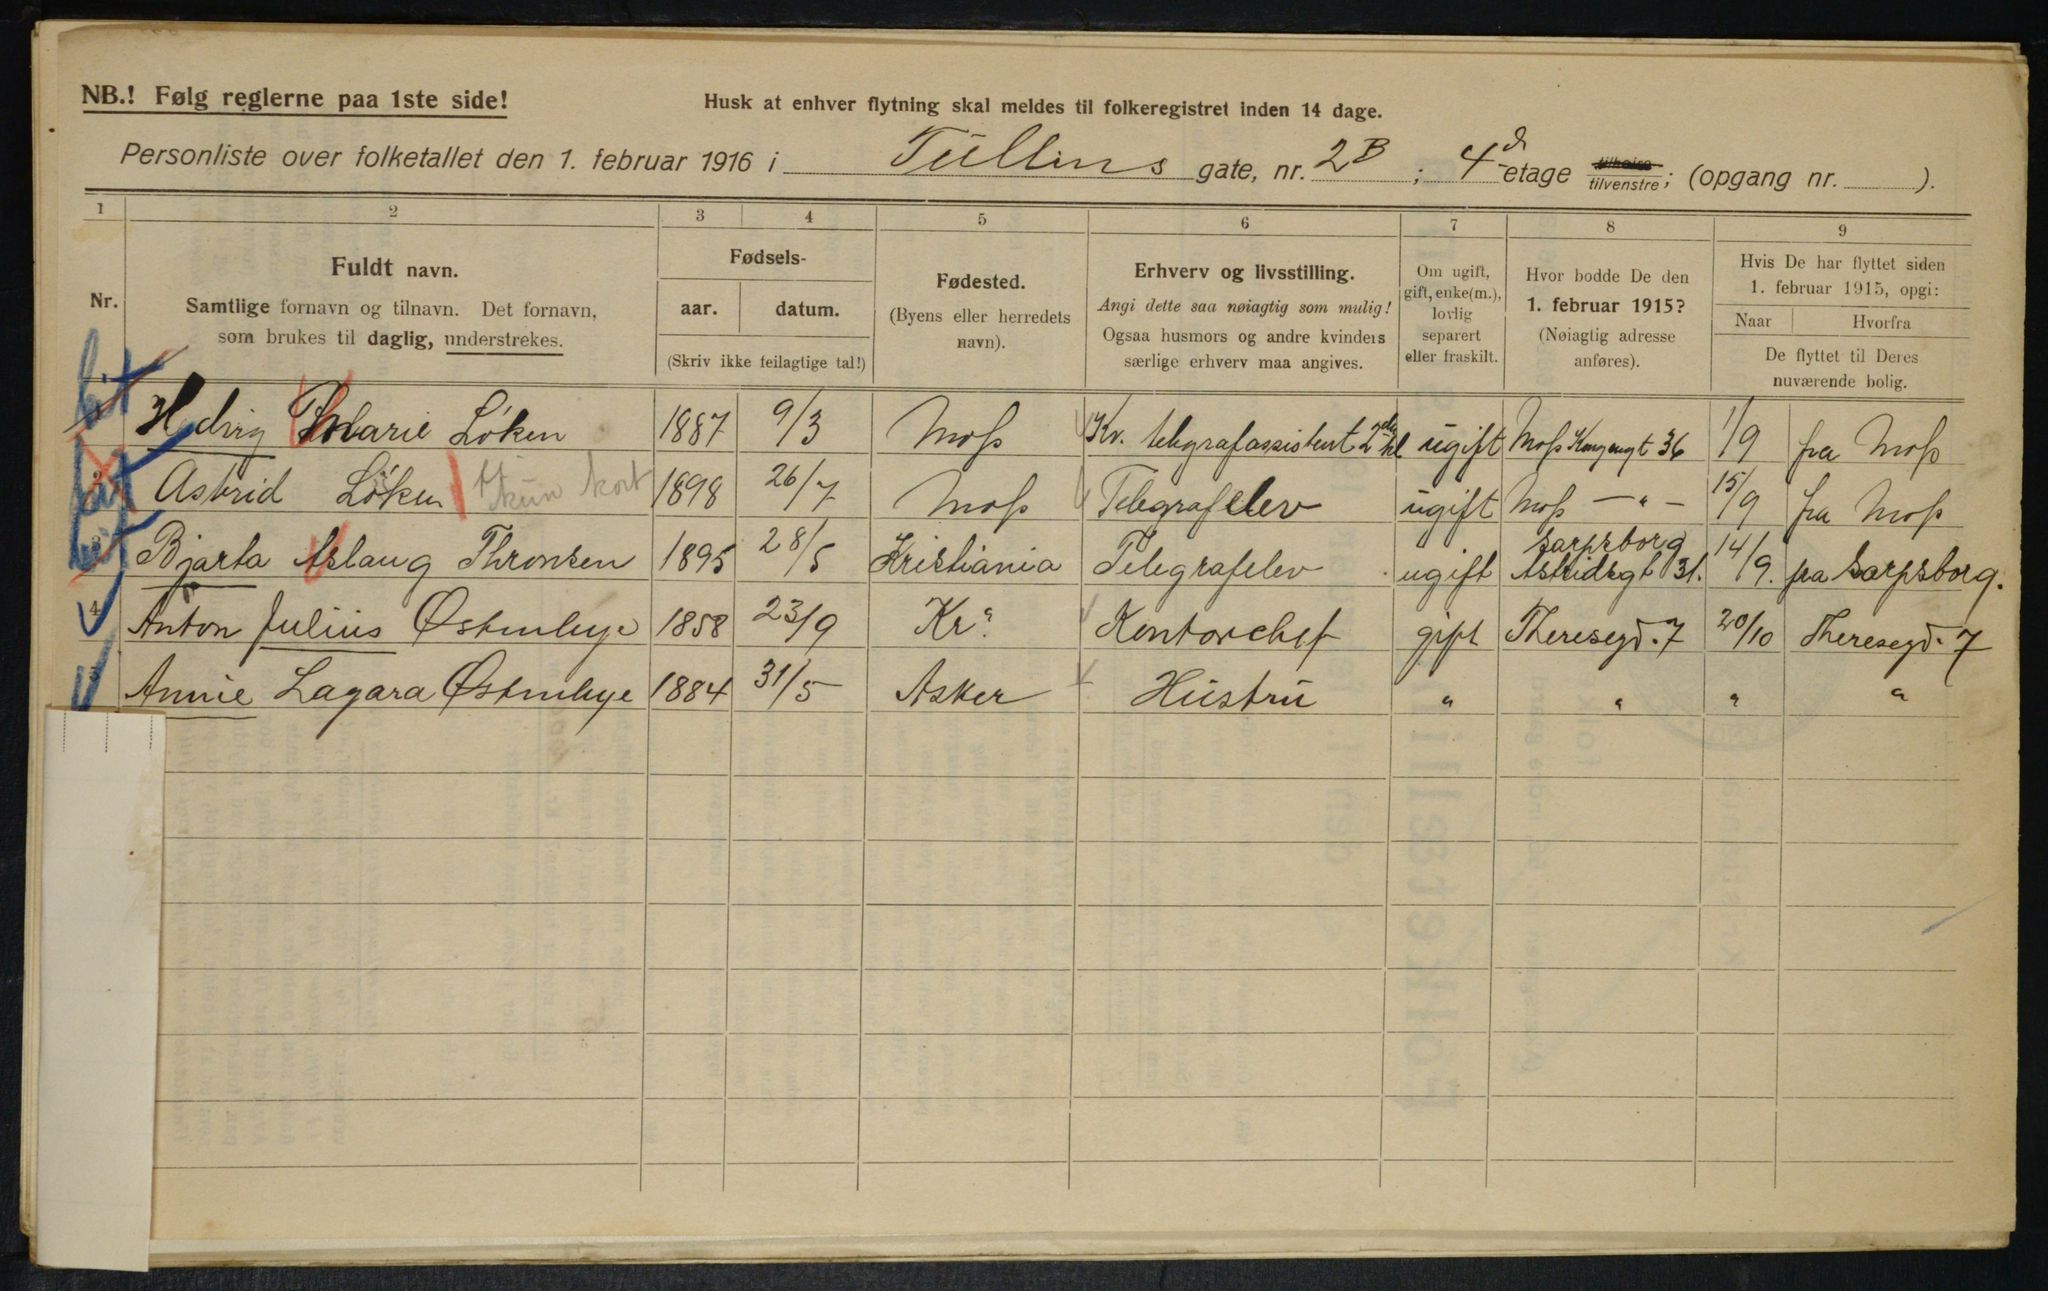 NB.! Følg reglerne paa 1ste side!
Husk at enhver flytning skal meldes til folkeregistret inden 14 dage.
Personliste over folketallet den 1. februar 1916 i Tullins gate, nr. 2B; 4d etage tilhøire tilvenstre; (opgang nr. ).
1 2 3 4 5 6 7 8 9
Nr.
Fuldt navn.
Samtlige fornavn og tilnavn. Det fornavn,
som brukes til daglig, understrekes.
Fødsels-
aar. datum.
(Skriv ikke feilagtige tal!)
Fødested.
(Byens eller herredets
navn).
Erhverv og livsstilling.
Angi dette saa nøiagtig som mulig!
Ogsaa husmors og andre kvinders
særlige erhverv maa angives.
Om ugift,
gift, enke(m.),
lovlig
separert
eller fraskilt.
Hvor bodde De den
1. februar 1915?
(Nøiagtig adresse
anføres).
Hvis De har flyttet siden
1. februar 1915, opgi:
Naar Hvorfra
De flyttet til Deres
nuværende bolig.
Hedvig Marie Löken 1887 9/3 Moss Kv. telegrafassistent 2den kl ugift Moss Kongensgt 36 1/9 fra Moss
2 Astrid Löken kun kort 1898 26/7 Moss Telegrafelev ugift Moss — " — 15/9 fra Moss
3 Bjarta Aslaug Thronsen 1895 28/5 Kristiania Telegrafelev ugift Sarpsborg Astridsgt 31. 14/9. fra Sarpsborg.
4 Anton Julius Østenbye 1858 23/9 Kra. Kontorchef gift Theresegd. 7 20/10 Theresegd. 7
5 Annie Lagara Østenbye 1884 31/5 Asker Hustru " " " "